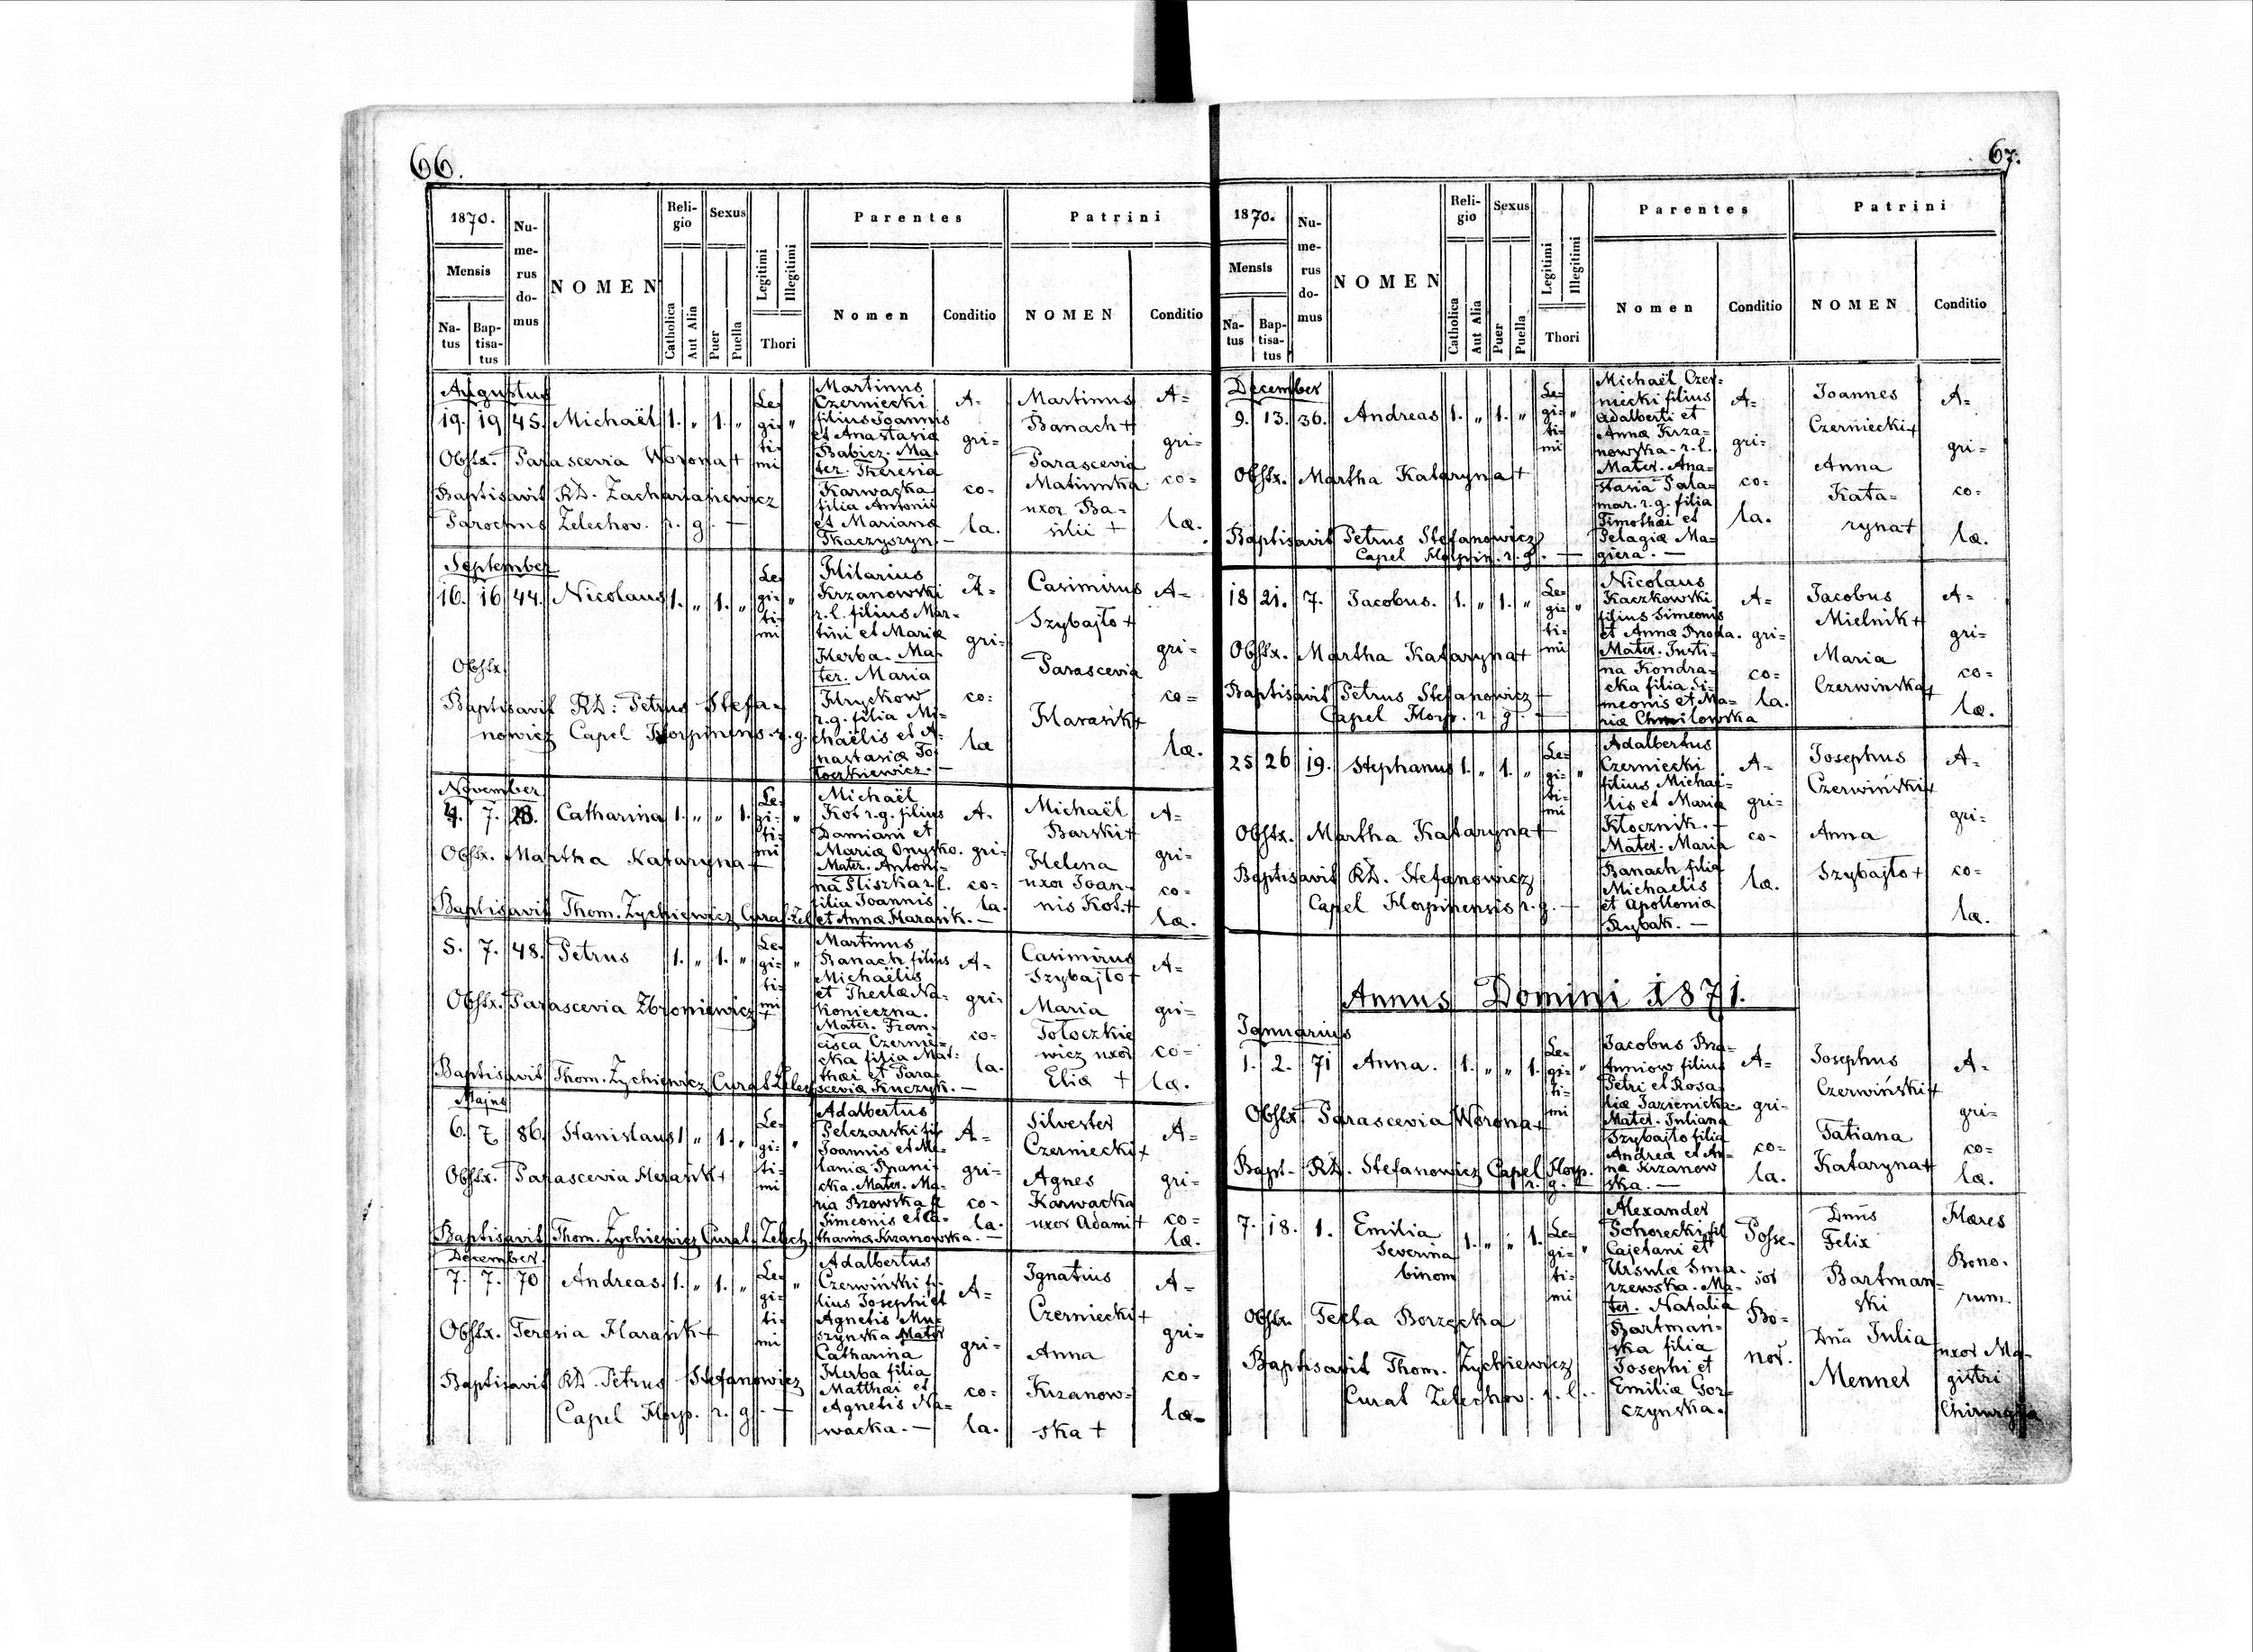 66.
1870.
Mensis
Na-
tus
Bap-
tisa-
tus
Nu-
me-
rus
do-
mus
NOMEN
Reli-
gio
Catholica
Aut Alia
Sexus
Puer
Puella
Legitimi
Illegitimi
Thori
Parentes
Nomen
Conditio
Patrini
NOMEN
Conditio
Augustus
19. 19 45. Michaël 1. „ 1. „
Le-
gi-
ti-
mi
„
Obstx. Parascevia Worona +
Baptisavit RD. Zachariasiewicz
Parochus Żelechov. r. g. —
Martinus
Czerniecki
filius Joannis
et Anastasia
Babicz. Ma-
ter. Theresia
Karwacka
filia Antonii
et Mariana
Tkaczyszyn. —
A-
gri-
co-
la.
Martinus
Banach +
Parascevia
Matiunka
uxor Ba-
silii +
A-
gri-
co-
læ.
September
16. 16 44. Nicolaus 1. „ 1. „
Le-
gi-
ti-
mi
„
Obstx.
Baptisavit RD: Petrus Stefa-
nowicz Capel Horpinens. r. g.
Hilarius
Krzanowski
r.l. filius Mar-
tini et Mariæ
Herba. Ma-
ter. Maria
Hryckow
r.g. filia Mi-
chaëlis et A-
nastasiæ To-
łoczkiewicz. —
A-
gri-
co-
læ
Casimirus
Szybajło +
Parascevia
Harasik +
A-
gri-
co-
læ.
November
4. 7. 28. Catharina 1. „ „ 1.
Le-
gi-
ti-
mi
„
Obstx. Martha Kataryna +
Baptisavit Thom. Zychiewicz Curat. Zel.
Michaël
Kot r.g. filius
Damiani et
Mariæ Onyśko.
Mater. Antoni-
na Sliszka r.l.
filia Joannis
et Annæ Harasik. —
A-
gri-
co-
la.
Michaël
Barski +
Helena
uxor Joan-
nis Kot. +
A-
gri-
co-
læ.
5. 7. 48. Petrus 1. „ 1. „
Le-
gi-
ti-
mi
„
Obstx. Parascevia Zbroniewicz +
Baptisavit Thom. Zychiewicz Curat Zelec.
Martinus
Banach filius
Michaëlis
et Theclæ Na-
konieczna.
Mater. Fran-
cisca Czernie-
cka filia Mat-
thæi et Para-
sceviæ Kuczyk. —
A-
gri-
co-
la.
Casimirus
Szybajło +
Maria
Tołoczkie
wicz uxor
Eliæ +
A-
gri-
co-
læ.
Majus
6. 7. 86. Stanislaus 1 „ 1. „
Le-
gi-
ti-
mi
„
Obstx. Parascevia Harasik +
Baptisavit Thom. Zychiewicz Curat. Zelech.
Adalbertus
Pelczarski fil
Joannis et Me-
laniæ
cka. Mater. Ma-
ria Bzowska fl
Simeonis et Ca-
tharinæ Krzanowska. —
A-
gri-
co-
la.
Silvester
Czerniecki +
Agnes
Karwacka
uxor Adami +
A-
gri-
co-
læ.
December
7. 7. 70 Andreas. 1. „ 1. „
Le-
gi-
ti-
mi
„
Obstx. Teresia Harasik +
Baptisavit RD. Petrus Stefanowicz
Capel Horp. r. g. +
Adalbertus
Czerwiński fi-
lius Josephi et
Agnetis Mu-
szynska Mater
Catharina
Herba filia
Matthæi et
Agnetis Na-
wacka. —
A-
gri-
co-
la.
Ignatius
Czerniecki +
Anna
Krzanow-
ska +
A-
gri-
co-
læ-
67.
1870.
Mensis
Na-
tus
Bap-
tisa-
tus
Nu-
me-
rus
do-
mus
NOMEN
Reli-
gio
Catholica
Aut Alia
Sexus
Puer
Puella
Legitimi
Illegitimi
Thori
Parentes
Nomen
Conditio
Patrini
NOMEN
Conditio
December
9. 13. 36. Andreas 1. „ 1. „
Le-
gi-
ti-
mi
„
Obstx. Martha Kataryna +
Baptisavit Petrus Stefanowicz
Capel Horpin. r. g. —
Michaël Czer-
niecki filius
Adalberti et
Annæ Krza-
nowska - r. l.
Mater. Ana-
stasia Pala-
mar. r.g. filia
Timothæi et
Pelagiæ Ma-
giera. —
A-
gri-
co-
la.
Joannes
Czerniecki +
Anna
Kata-
ryna +
A-
gri-
co-
læ.
18 21. 7. Jacobus. 1. „ 1. „
Le-
gi-
ti-
mi
„
Obstx. Martha Kataryna +
Baptisavit Petrus Stefanowicz +
Capel Horp. r g. +
Nicolaus
Kaczkowski
filius Simeonis
et Annæ Proda.
Mater. Justi-
na Kondra-
cka filia Si-
meonis et Ma-
riæ Chmilowska
A-
gri-
co-
la.
Jacobus
Mielnik +
Maria
Czerwinska +
A-
gri-
co-
læ.
25 26 19. Stephanus 1. „ 1. „
Le-
gi-
ti-
mi
„
Obstx. Martha Kataryna +
Baptisavit RD. Stefanowicz
Capel Horpinensis r. g. —
Adalbertus
Czerniecki
filius Michaë-
lis et Maria
Kłocznik. +
Mater. Maria
Banach filia
Michaelis
et Apolloniæ
Rybak. —
A-
gri-
co-
læ.
Josephus
Czerwiński +
Anna
Szybajło +
A-
gri-
co-
læ.
Annus Domini 1871.
Januarius
1. 2. 71 Anna. 1. „ „ 1.
Le-
gi-
ti-
mi
„
Obstx Parascevia Worona +
Bapt. RD. Stefanowicz Capel Horp.
r. g. —
Jacobus Bra-
tuniow filius
Petri et Rosa-
liæ Jazienicka.
Mater. Juliana
Szybajło filia
Andrea et An-
na Krzanow
ska. —
A-
gri-
co-
la.
Josephus
Czerwiński +
Tatiana
Kataryna +
A-
gri-
co-
læ.
7. 18. 1. Emilia 1. „ „ 1.
Severina
binom
Le-
gi-
ti-
mi
„
Obstx. Tecla Borzęcka
Baptisavit Thom. Zychiewicz
Curat Zelechov. r. l.
Alexander
Pohorecki fil
Cajetani et
Ursulæ Sma-
rzewska. Ma-
ter. Natalia
Bartmań-
ska filia
Josephi et
Emiliæ Gor-
czynska.
Posse-
sor
Bo-
nor.
Dnus
Felix
Bartmań-
ski
Dna Julia
Menner
Hæres
Bono-
rum.
uxor Ma-
gistri
Chirurgiæ